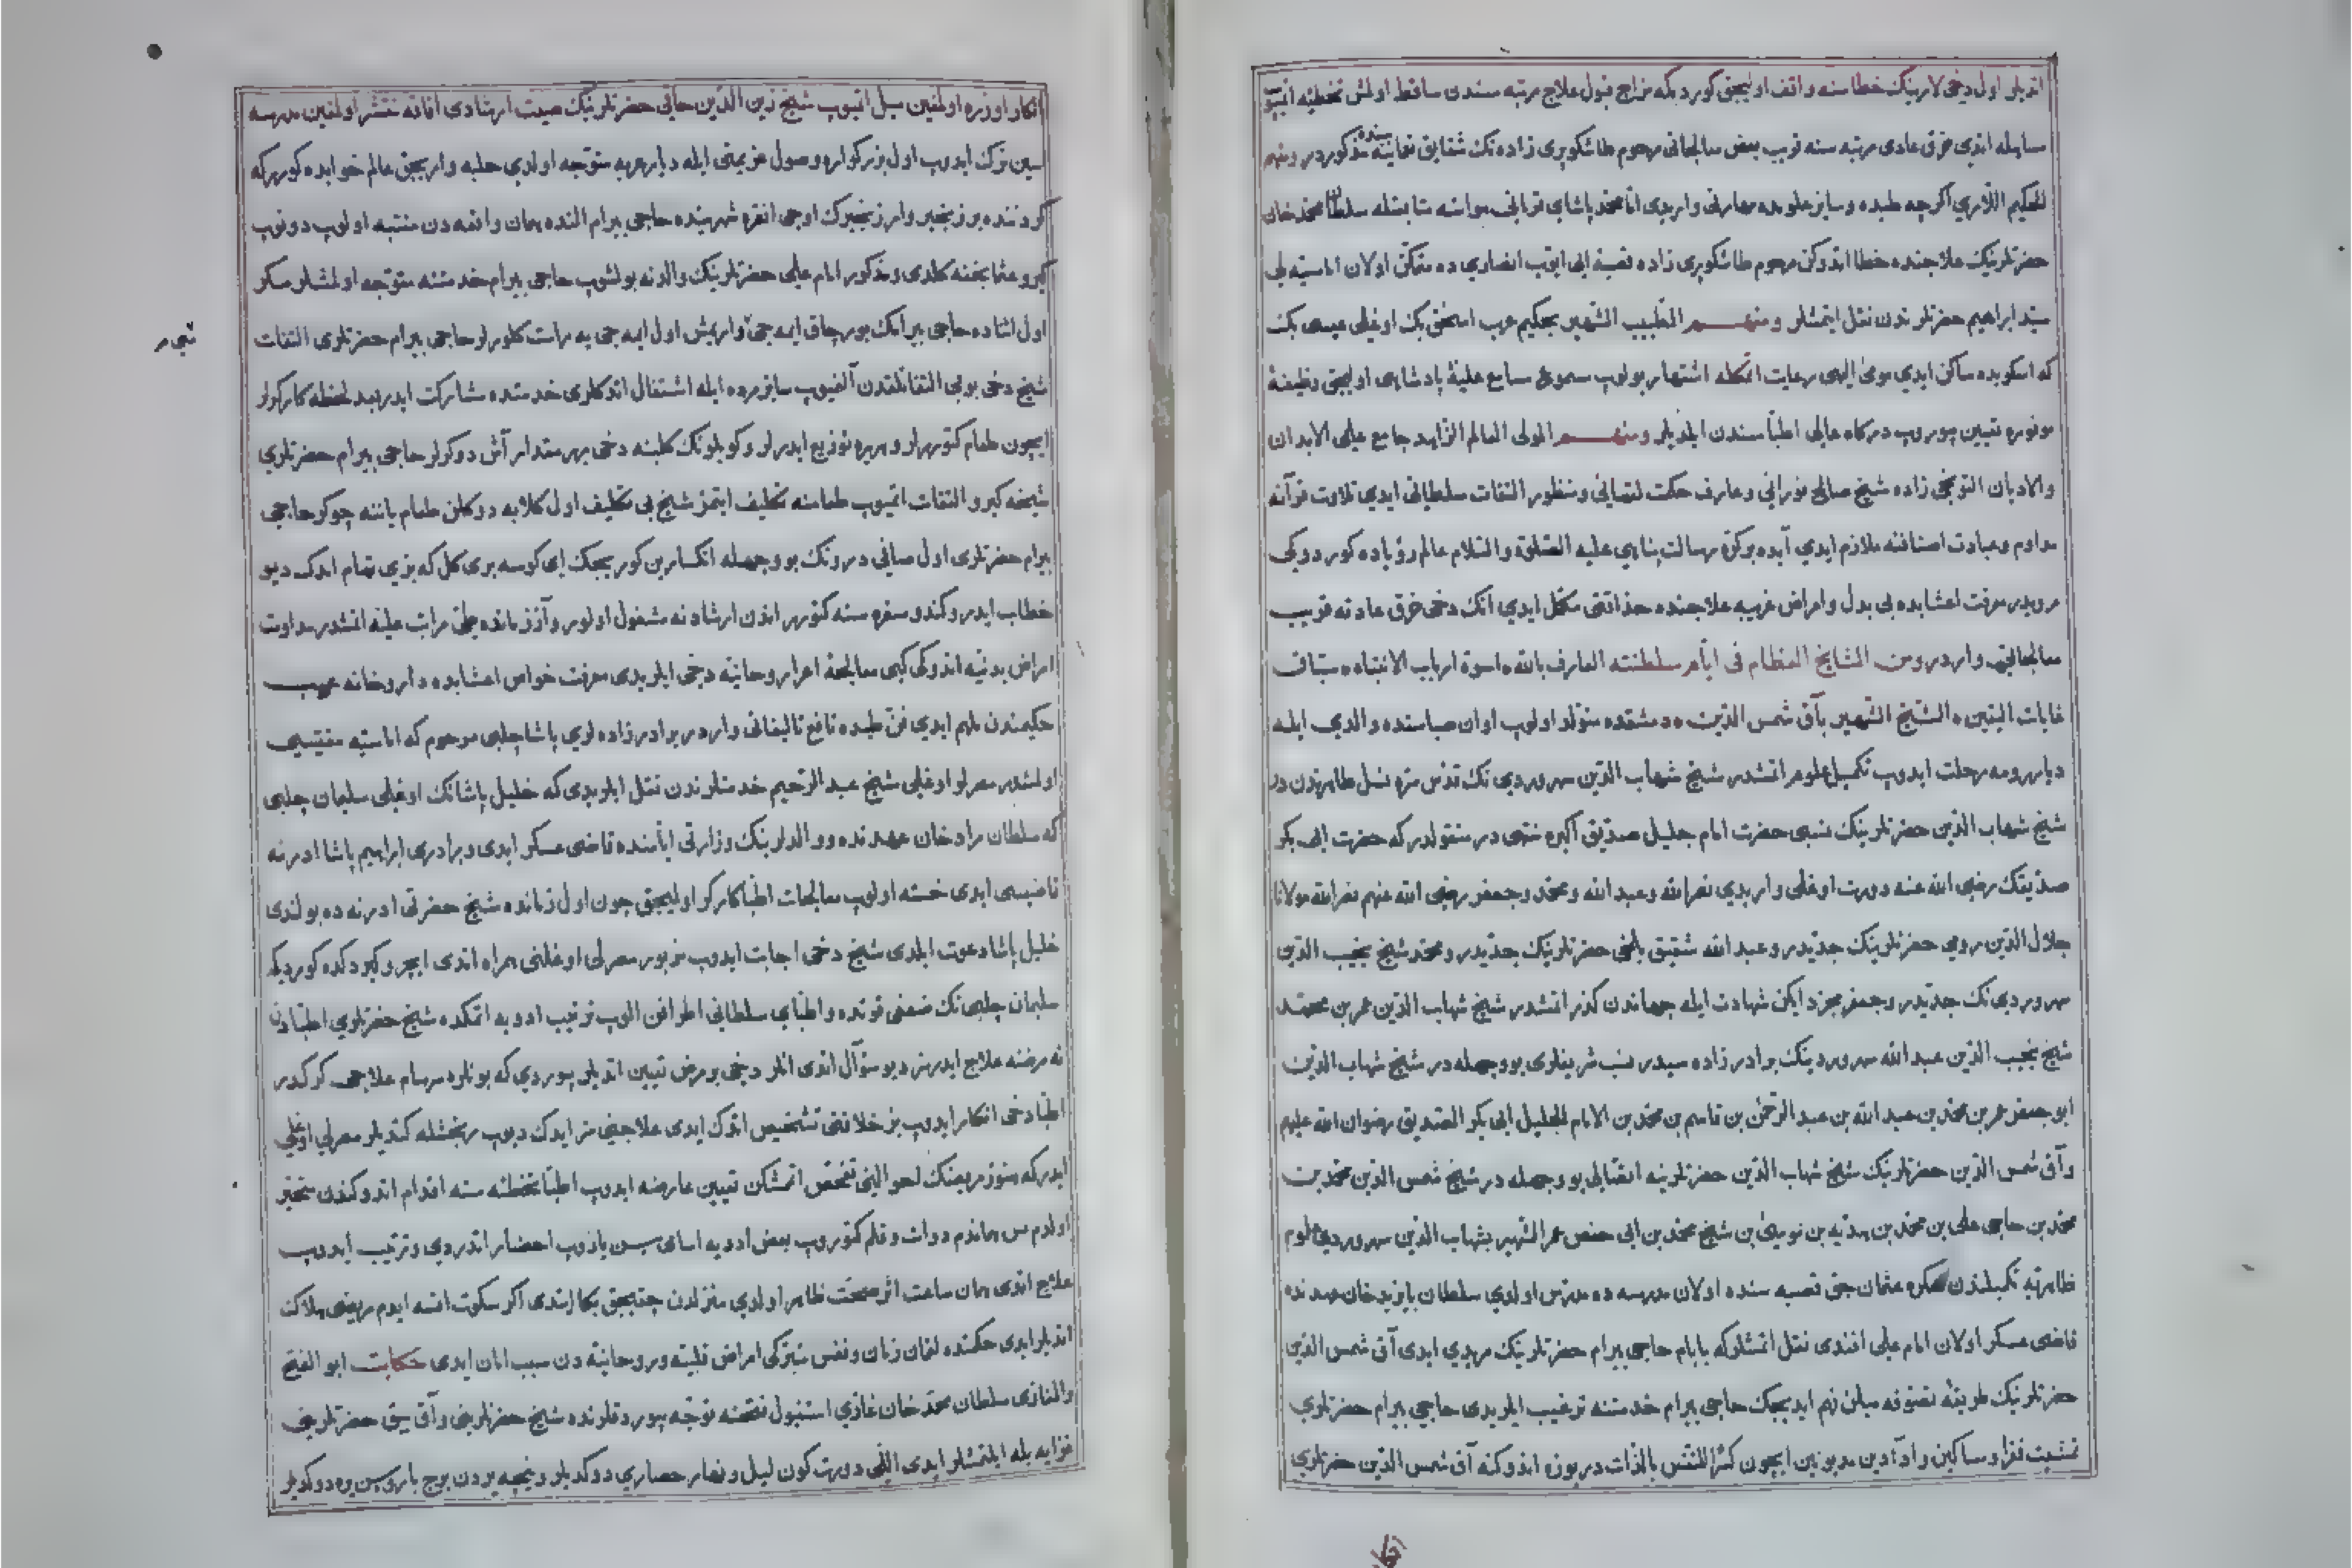 اتدیلر اول دخی لارینك خطاسنه واقف اولیجق كوردیكه مزاج قبول علاج مرتبه سندن ساقط اولمش تخطئه اتمیوب
ساهله اتدی خرق عادی مرتبه سنه قریب بعض معالجاتی مرحوم طاشكوپری زاده نك شقایق نعمانیه سنده مذكوردر ومنهم
الحكیم اللاری اكرچه طبده وسایر علومده مهارتی واریدی اما محمد پاشای قرمانی هواسنه متابعتله سلطان محمد خان
حضرتلرینك علاجنده خطا اتدوكن مرحوم طاشكوپری زاده قصبه ابی ایوب انصاری ده متمكن اولان اماسیه لی
سید ابراهیم حضرتلرندن نقل ایتمشلر ومنهم الطبیب الشهیر بحكیم عرب اسحق بك اوغلی عیسی بك
كه اسكوبده ساكن ایدی مومی الیهی رعایت اتمكله اشتهار بولوب مسموع مسامع علیهٔ پادشاهی اولیجق وظیفهٔ
موفوره تعیین بیوروب دركاه عالی اطباسندن ایلدیلر ومنهم المولی العالم الزاهد جامع علمی الابدان
والادیان التوتجی زاده شیخ صالح نورانی وعارف حكمت لقمانی ومنظور التفات سلطانی ایدی تلاوت قرآنه
مداوم وعبادت اصنافنه ملازم ایدی آیده بركره رسالت پناهی علیه الصلوة والسلام عالم رؤیاده كوردوكی
مرویدر معرفت اعشابده بی بدل وامراض غریبه علاجنده حذاقتی مكمل ایدی انك دخی خرق عادته قریب
معالجاتی واردر ومن المشایخ العظام فی ایام سلطنته العارف بالله اسوة ارباب الانتباه سباق
غایات الیقین الشیخ الشهیر بآق شمس الدین دمشقده متولد اولوب اوان صباسنده والدی ایله
دیار رومه رحلت ایدوب تكمیل علوم اتمشدر شیخ شهاب الدین سهروردی نك قدس سره نسل طاهرندن در
شیخ شهاب الدین حضرتلرینك نسبی حضرت امام جلیل صدیق اكبره منتهی در منقولدر كه حضرت ابی بكر
صدیقك رضی الله عنه دورت اوغلی واریدی نصرالله وعبد الله ومحمد وجعفر رضی الله عنهم نصرالله مولانا
جلال الدین رومی حضرتلرینك جدیدر وعبد الله شقیق بلخی حضرتلرینك جدیدر ومحمد شیخ نجیب الدین
سهروردی نك جدیدر وجعفر مجرد ایكن شهادت ایله جهاندن كذر اتمشدر شیخ شهاب الدین عمر بن محمد
شیخ نجیب الدین عبد الله سهروردینك برادر زاده سیدر نسب شریفلری بو وجهله در شیخ شهاب الدین
ابو جعفر عمر بن محمد بن عبد الله بن عبد الرحمن بن قاسم بن محمد بن الامام الجلیل ابی بكر الصدیق رضوان الله علیهم
وآق شمس الدین حضرتلرینك شیخ شهاب الدین حضرتلرینه انتسابی بو وجهله در شیخ شمس الدین محمد بن
محمد بن حاجی علی بن محمد بن هدیه بن موسی بن شیخ محمد بن ابی حفص عمر الشهیر بشهاب الدین سهروردی علوم
ظاهریه تكمیلندن صكره عثمان جق قصبه سنده اولان مدرسه ده مدرس اولدی سلطان بایزید خان عهدنده
قاضی عسكر اولان امام علی افندی نقل اتمشلر كه بابام حاجی بیرام حضرتلرینك مریدی ایدی آق شمس الدین
حضرتلرینك طریقهٔ تصوفه میلن فهم ایدیجك حاجی بیرام خدمتنه ترغیب ایلریدی حاجی بیرام حضرتلری
تمشیت فقرا ومساكین وادآء دین مدیونین ایچون كسرا للنفس بالذات دریوزه اتدوكنه آق شمس الدین حضرتلری
انكار اوزره اولمغین میل اتمیوب شیخ زین الدین حافی حضرتلرینك صیت ارشادی آفاقه منتشر اولمغین مدرسه
سین ترك ایدوب اول بزركواره وصول عزیمتی ایله دیار عربه متوجه اولدی حلبه واریجق عالم خوابده كورر كه
كردننده بر زنجیر وار زنجیرك اوجی انقره شهرینده حاجی بیرام النده همان واقعه دن منتبه اولوب دونوب
كیرو عثمانجغه كلدی ومذكور امام علی حضرتلرینك والدنه بولشوب حاجی بیرام خدمتنه متوجه اولمشلر مكر
اول اثناده حاجی بیرامك بورچاق ایمه جی وارمش اول ایمه جی یه راست كلورلر حاجی بیرام حضرتلری التفات
شیخ دخی بونی التفاتلقدن آلغیوب سایر مرده ایله اشتغال اتدكلری خدمتده مشاركت ایدر بعد لحظه كاركرلر
ایچون طعام كتوررلر وبربره توزیع ایدرلر وكوپلرنك كلبنه دخی بر مقدار آش دوكرلر حاجی بیرام حضرتلری
شیخه كیرو التفات اتمیوب طعامنه تكلیف ایتمز شیخ بی تكلیف اول كلابه دوكلن طعام یاننه چوكر حاجی
بیرام حضرتلری اول صافی درونك بو وجهله انكسارین كوریجك ای كوسه بری كل كه بزی تمام ایدك دیو
خطاب ایدر وكندو سفره سنه كتورر اندن ارشادنه مشغول اولور وآز زمانده جلی مراتب علیه اتمشدر مداوت
امراض بدنیه اتدوكی كبی معالجهٔ امراض روحانیه دخی ایلریدی معرفت خواص اعشابده داروخانه غیب
حكیمندن ملهم ایدی فن طبده نافع تالیفاتی واردر برادر زاده لری پاشا چلبی مرحوم كه اماسیه مفتیسی
اولمشدر مصرلو اوغلی شیخ عبد الرحیم خدمتلرندن نقل ایلریدی كه خلیل پاشانك اوغلی سلیمان چلبی
كه سلطان مراد خان عهدنده ووالدلرینك وزارتی ایامنده قاضی عسكر ایدی وبرادری ابراهیم پاشا ادرنه
قاضیسی ایدی خسته اولوب معالجات اطبا كاركر اولمیجق چون اول زمانده شیخ حضرتی ادرنه ده بولندی
خلیل پاشا دعوت ایلدی شیخ دخی اجابت ایدوب مزبور مصرلی اوغلنی همراه اتدی ایچرو كیردكده كوردیكه
سلیمان چلبی نك ضعفی قوتده واطبای سلطانی اطرافن الوب ترتیب ادویه اتمكده شیخ حضرتلری اطبادن
نه مرضنه علاج ایدرسز دیو سؤال اتدی انلر دخی بر مرض تعیین اتدیلر بیوردی كه بونلره سرسام علاجی كركدر
اطبا دخی انكار ایدوب بز خلافنی تشخیص اتدك ایدی علاجنی بز ایدرك دیوب رنجشله كتدیلر مصرلی اوغلی
ایدر كه هنوز مریضك احوالنی تفحص اتمشكن تعیین عارضه ایدوب اطبا تخطئه سنه اقدام اتدوكندن متحیر
اولدم بس هماندم دوات وقلم كتوروب بعض ادویه اسامی سن یازوب احضار اتدردی وترتیب ایدوب
علاج اتدی همان ساعت اثر صحت ظاهر اولدی منزلدن چقیجق بكا ایتدی اكر سكوت اتسه ایدم مریضی هلاك
اتدیلر ایدی حكمتده لقمان زمان ونفس متبركی امراض قلبیه وروحانیه دن سبب امان ایدی حكایت ابو الفتح
والمغازی سلطان محمد خان غازی استنبول فتحنه توجه بیوردقلرنده شیخ حضرتلرینی وآق بیق حضرتلرینی
غزایه بله ایلتمشلر ایدی اللی دورت كون لیل ونهار حصاری دوكدیلر ونیچه یردن برج بارو سین یره دوكدیلر